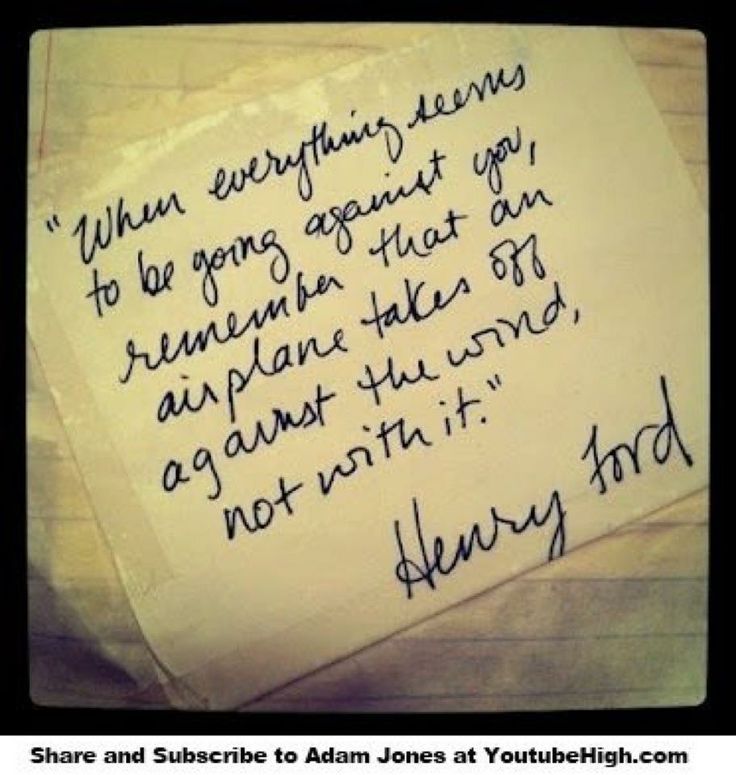 "When everything seems
to be going against you,
remember that an
airplane takes off
against the wind,
not with it."
Henry Ford
Share and Subscribe to Adam Jones at YoutubeHigh.com